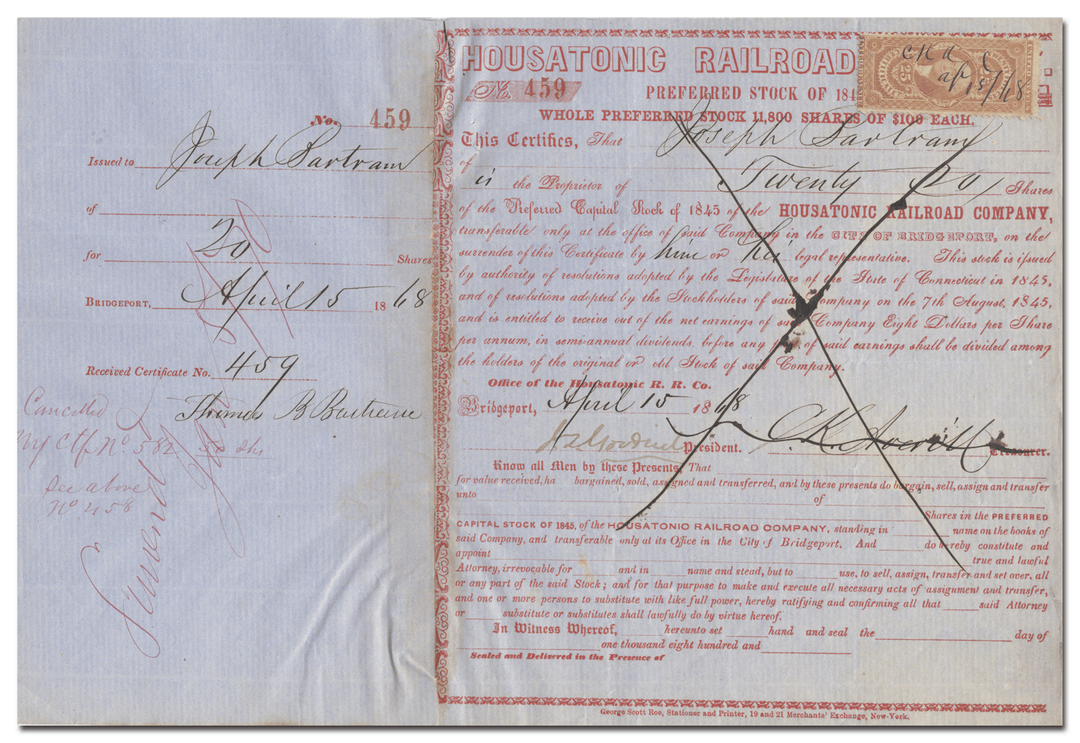 No. 459
Issued to Joseph Bartram
of
for 20 Shares
BRIDGEPORT, April 15 1868
Received Certificate No. 459
Thomas B Bartram
Cancelled
by Ctf No. 582 50 shs
See above
No 458
HOUSATONIC RAILROAD
No. 459
PREFERRED STOCK OF 184
WHOLE PREFERRED STOCK 11,800 SHARES OF $100 EACH.
CKA
ap 15/68
This Certifies, That Joseph Bartram
of
is the Proprietor of Twenty 20 Shares
of the Preferred Capital Stock of 1845 of the HOUSATONIC RAILROAD COMPANY,
transferable only at the office of said Company in the CITY OF BRIDGEPORT, on the
surrender of this Certificate by him or his legal representative. This stock is issued
by authority of resolutions adopted by the Legislature of the State of Connecticut in 1845,
and of resolutions adopted by the Stockholders of said Company on the 7th August, 1845,
and is entitled to receive out of the net earnings of said Company Eight Dollars per Share
per annum, in semi-annual dividends, before any part of said earnings shall be divided among
the holders of the original or old Stock of said Company.
Office of the Housatonic R. R. Co.
Bridgeport, April 15 1868
President. Treasurer.
Know all Men by these Presents, That
for value received, ha bargained, sold, assigned and transferred, and by these presents do bargain, sell, assign and transfer
unto of
Shares in the PREFERRED
CAPITAL STOCK OF 1845, of the HOUSATONIC RAILROAD COMPANY, standing in name on the books of
said Company, and transferable only at its Office in the City of Bridgeport. And do hereby constitute and
appoint true and lawful
Attorney, irrevocable for and in name and stead, but to use, to sell, assign, transfer and set over, all
or any part of the said Stock; and for that purpose to make and execute all necessary acts of assignment and transfer,
and one or more persons to substitute with like full power, hereby ratifying and confirming all that said Attorney
or substitute or substitutes shall lawfully do by virtue hereof.
In Witness Whereof, hereunto set hand and seal the day of
one thousand eight hundred and
Sealed and Delivered in the Presence of
George Scott Roe, Stationer and Printer, 19 and 21 Merchants' Exchange, New-York.